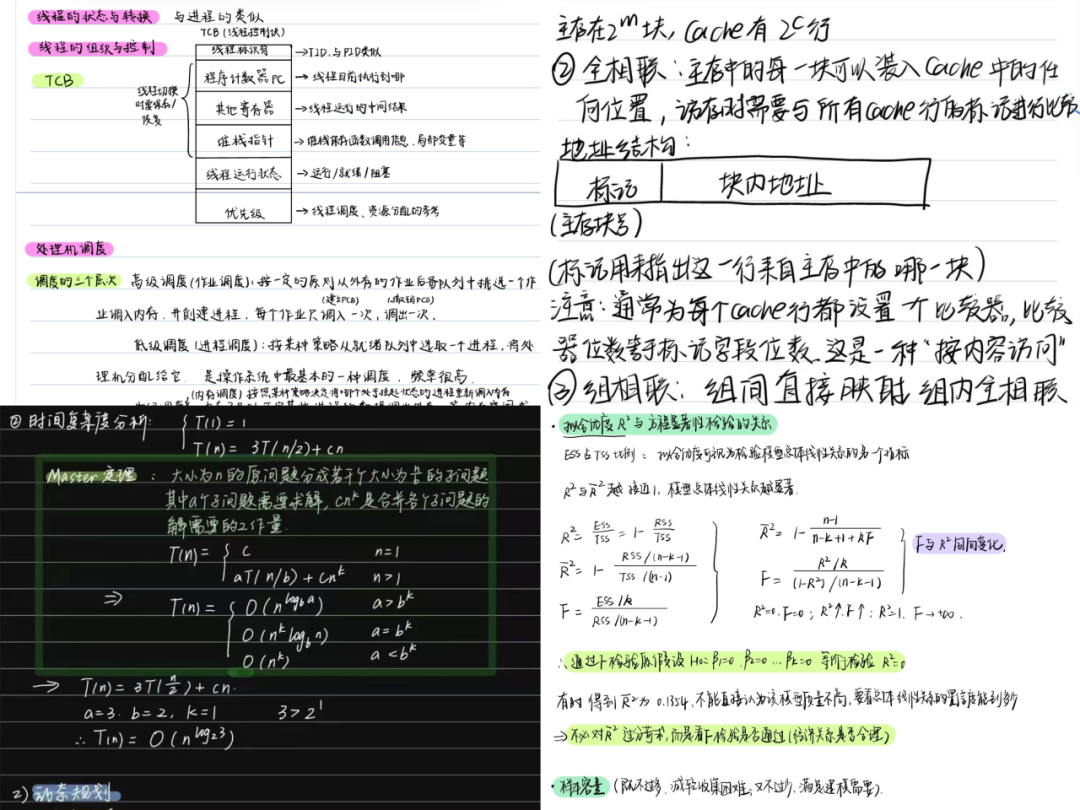 线程的状态与转换 与进程的类似
TCB (线程控制块)
线程的组织与控制
TCB
线程标识符 → TID, 与PID类似
线程切换时要保存/恢复
程序计数器PC → 线程目前执行到哪
其他寄存器 → 线程运行的中间结果
堆栈指针 → 堆栈保存函数调用信息、局部变量等
线程运行状态 → 运行/就绪/阻塞
优先级 → 线程调度、资源分配的参考
处理机调度
调度的三个层次 高级调度(作业调度): 按一定的原则从外存的作业后备队列中挑选一个作
(建PCB) (撤销PCB)
业调入内存, 并创建进程, 每个作业只调入一次, 调出一次.
低级调度(进程调度): 按某种策略从就绪队列中选取一个进程, 将处
理机分配给它. 是操作系统中最基本的一种调度, 频率很高.
(内存调度) 按照某种策略决定将哪个处于挂起状态的进程重新调入内存
主存在2^m块, Cache有 2^c行
② 全相联: 主存中的每一块可以装入Cache中的任
何位置, 访存时需要与所有Cache行的标记进行比较
地址结构:
标记 块内地址
(主存块号)
(标记用来指出这一行来自主存中的哪一块)
注意: 通常为每个cache行都设置一个比较器, 比较
器位数等于标记字段位数. 这是一种"按内容访问"
③ 组相联: 组间直接映射, 组内全相联
② 时间复杂度分析: { T(1) = 1
T(n) = 3T(n/2) + cn
Master 定理: 大小为n的原问题分成若干个大小为 n/b 的子问题
其中a个子问题需要求解, cn^k 是合并各个子问题的
解需要的工作量.
T(n) = { c n=1
aT(n/b) + cn^k n>1
⇒ T(n) = { O(n^{log_b a}) a > b^k
O(n^k log_b n) a = b^k
O(n^k) a < b^k
→ T(n) = 3T(n/2) + cn.
a=3. b=2, k=1 3>2^1
∴ T(n) = O(n^{log_2 3})
2) 动态规划
· 拟合优度 R² 与方程显著性检验的关系
ESS占TSS比例: 拟合优度可视为检验模型总体线性关系的另一个指标
R²与R̄²越接近1, 模型总体线性关系越显著.
R² = ESS/TSS = 1 - RSS/TSS
R̄² = 1 - [RSS/(n-k-1)] / [TSS/(n-1)]
F = [ESS/k] / [RSS/(n-k-1)]
R̄² = 1 - (n-1)/(n-k-1+kF)
F = [R²/k] / [(1-R²)/(n-k-1)]
F与R²同向变化.
R²=0. F=0; R²↑. F↑; R²=1. F→+∞.
∴ 通过F检验原假设 H₀: β₁=0. β₂=0 ... βₖ=0 等价于检验 R²=0
有时得到 R̄²为 0.1354, 不能直接认为该模型质量不高, 要看总体线性关系的置信度能到多少
⇒ 不必对R̄²过分苛求, 而是看F检验是否通过(经济关系是否合理)
· 样本容量 (既不过多, 减轻收集困难; 又不过少, 满足建模需要).